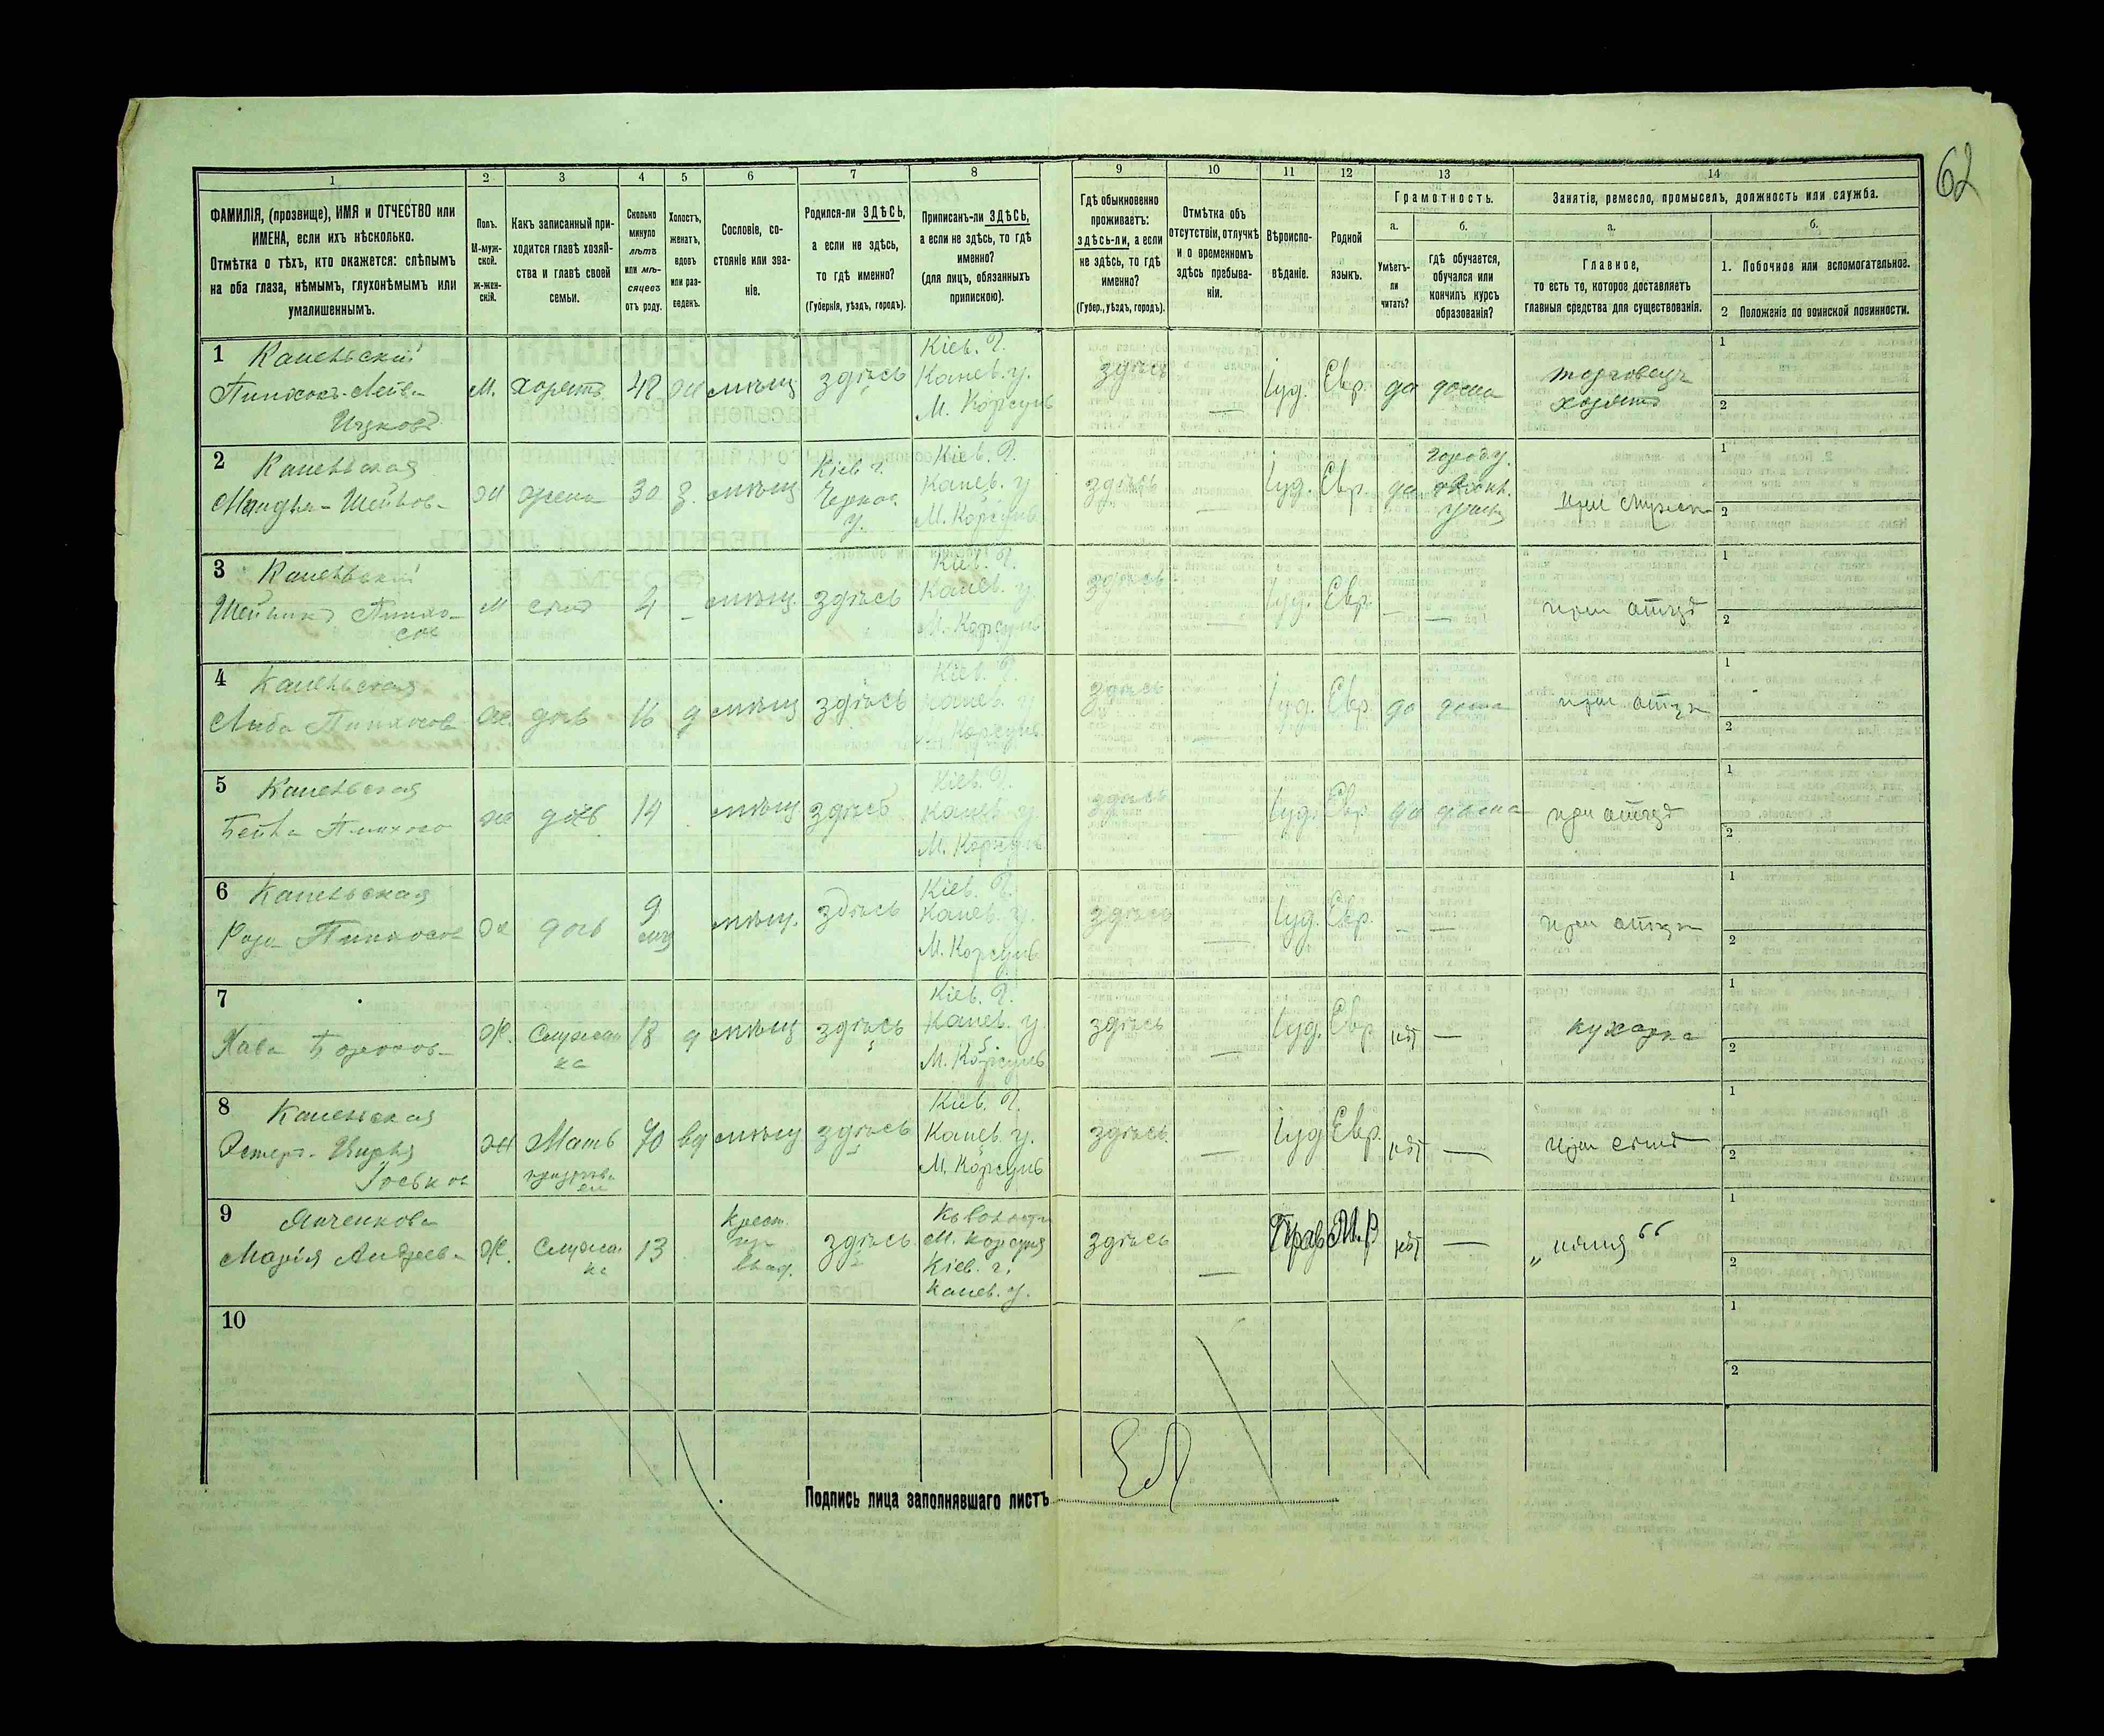 62
1 2 3 4 5 6 7 8 9 10 11 12 13 14
ФАМИЛІЯ, (прозвище), ИМЯ и ОТЧЕСТВО или
ИМЕНА, если ихъ нѣсколько.
Отмѣтка о тѣхъ, кто окажется: слѣпымъ
на оба глаза, нѣмымъ, глухонѣмымъ или
умалишеннымъ.
Полъ.
М-муж-
ской.
Ж-жен-
скій.
Какъ записанный при-
ходится главѣ хозяй-
ства и главѣ своей
семьи.
Сколько
минуло
лѣтъ
или мѣ-
сяцевъ
отъ роду.
Холостъ,
женатъ,
вдовъ
или раз-
веденъ.
Сословіе, со-
стояніе или зва-
ніе.
Родился-ли ЗДѢСЬ,
а если не здѣсь,
то гдѣ именно?
(Губернія, уѣздъ, городъ).
Приписанъ-ли ЗДѢСЬ,
а если не здѣсь, то гдѣ
именно?
(для лицъ, обязанныхъ
припискою).
Гдѣ обыкновенно
проживаетъ:
здѣсь-ли, а если
не здѣсь, то гдѣ
именно?
(Губер., уѣздъ, городъ).
Отмѣтка объ
отсутствіи, отлучкѣ
и о временномъ
здѣсь пребыва-
ніи.
Вѣроиспо-
вѣданіе.
Родной
языкъ.
Грамотность.
а.
Умѣетъ-
ли
читать?
б.
гдѣ обучается,
обучался или
кончилъ курсъ
образованія?
Занятіе, ремесло, промыселъ, должность или служба.
а.
Главное,
то есть то, которое доставляетъ
главныя средства для существованія.
б.
1. Побочное или вспомогательное.
2 Положеніе по воинской повинности.
1 Каневскій
Пинхосъ-Лейба
Ицковъ
М. хозяинъ 48 ж мѣщ здѣсь
Кіев. г.
Канев. у.
М. Корсунь
здѣсь — Іуд. Евр. да дома
торговецъ
хозяинъ
1
2
2 Каневская
ж жена 30 з. мѣщ
Кіев г.
Черкас.
у.
Кіев. г.
Канев. у
М. Корсунь
здѣсь — Іуд. Евр. да
при мужѣ
1
2
3 Каневскій
м сынъ 4 - мѣщ. здѣсь
Кіев. г.
Канев. у.
М. Корсунь
здѣсь — Іуд. Евр. — —
при отцѣ
1
2
4 Каневская
Либа Пинхосова
ж. дочь 16 д мѣщ здѣсь
Кіев. г.
Канев. у
М. Корсунь
здѣсь — Іуд. Евр да дома
при отцѣ
1
2
5 Каневская
ж дочь 14 мѣщ. здѣсь
Кіев. г.
Канев. у
М. Корсунь
здѣсь — Іуд. Евр да дома
при отцѣ
1
2
6 Каневская
Роза Пинхосов
ж дочь 9 мѣщ. здѣсь
Кіев. г.
Канев. у.
М. Корсунь
здѣсь — Іуд. Евр. — —
при отцѣ
1
2
7
Хава
Ж. Служан
ка
18 д мѣщ здѣсь
Кіев. г.
Канев. у.
М. Корсунь
здѣсь — Іуд. Евр нѣт —
кухарка
1
2
8 Каневская
Эстеръ-
ж Мать
70 вд мѣщ здѣсь
Кіев. г.
Канев. у.
М. Корсунь
здѣсь — Іуд Евр. нѣт —
при сынѣ
1
2
9
Марія Андреева
Ж. Служан
ка
13
Крест.
здѣсь
М. Корсуня
Кіев. г.
Канев. у.
здѣсь — Прав М.Р нѣт —
„ няня “
1
2
10
1
2
Подпись лица заполнявшаго листъ